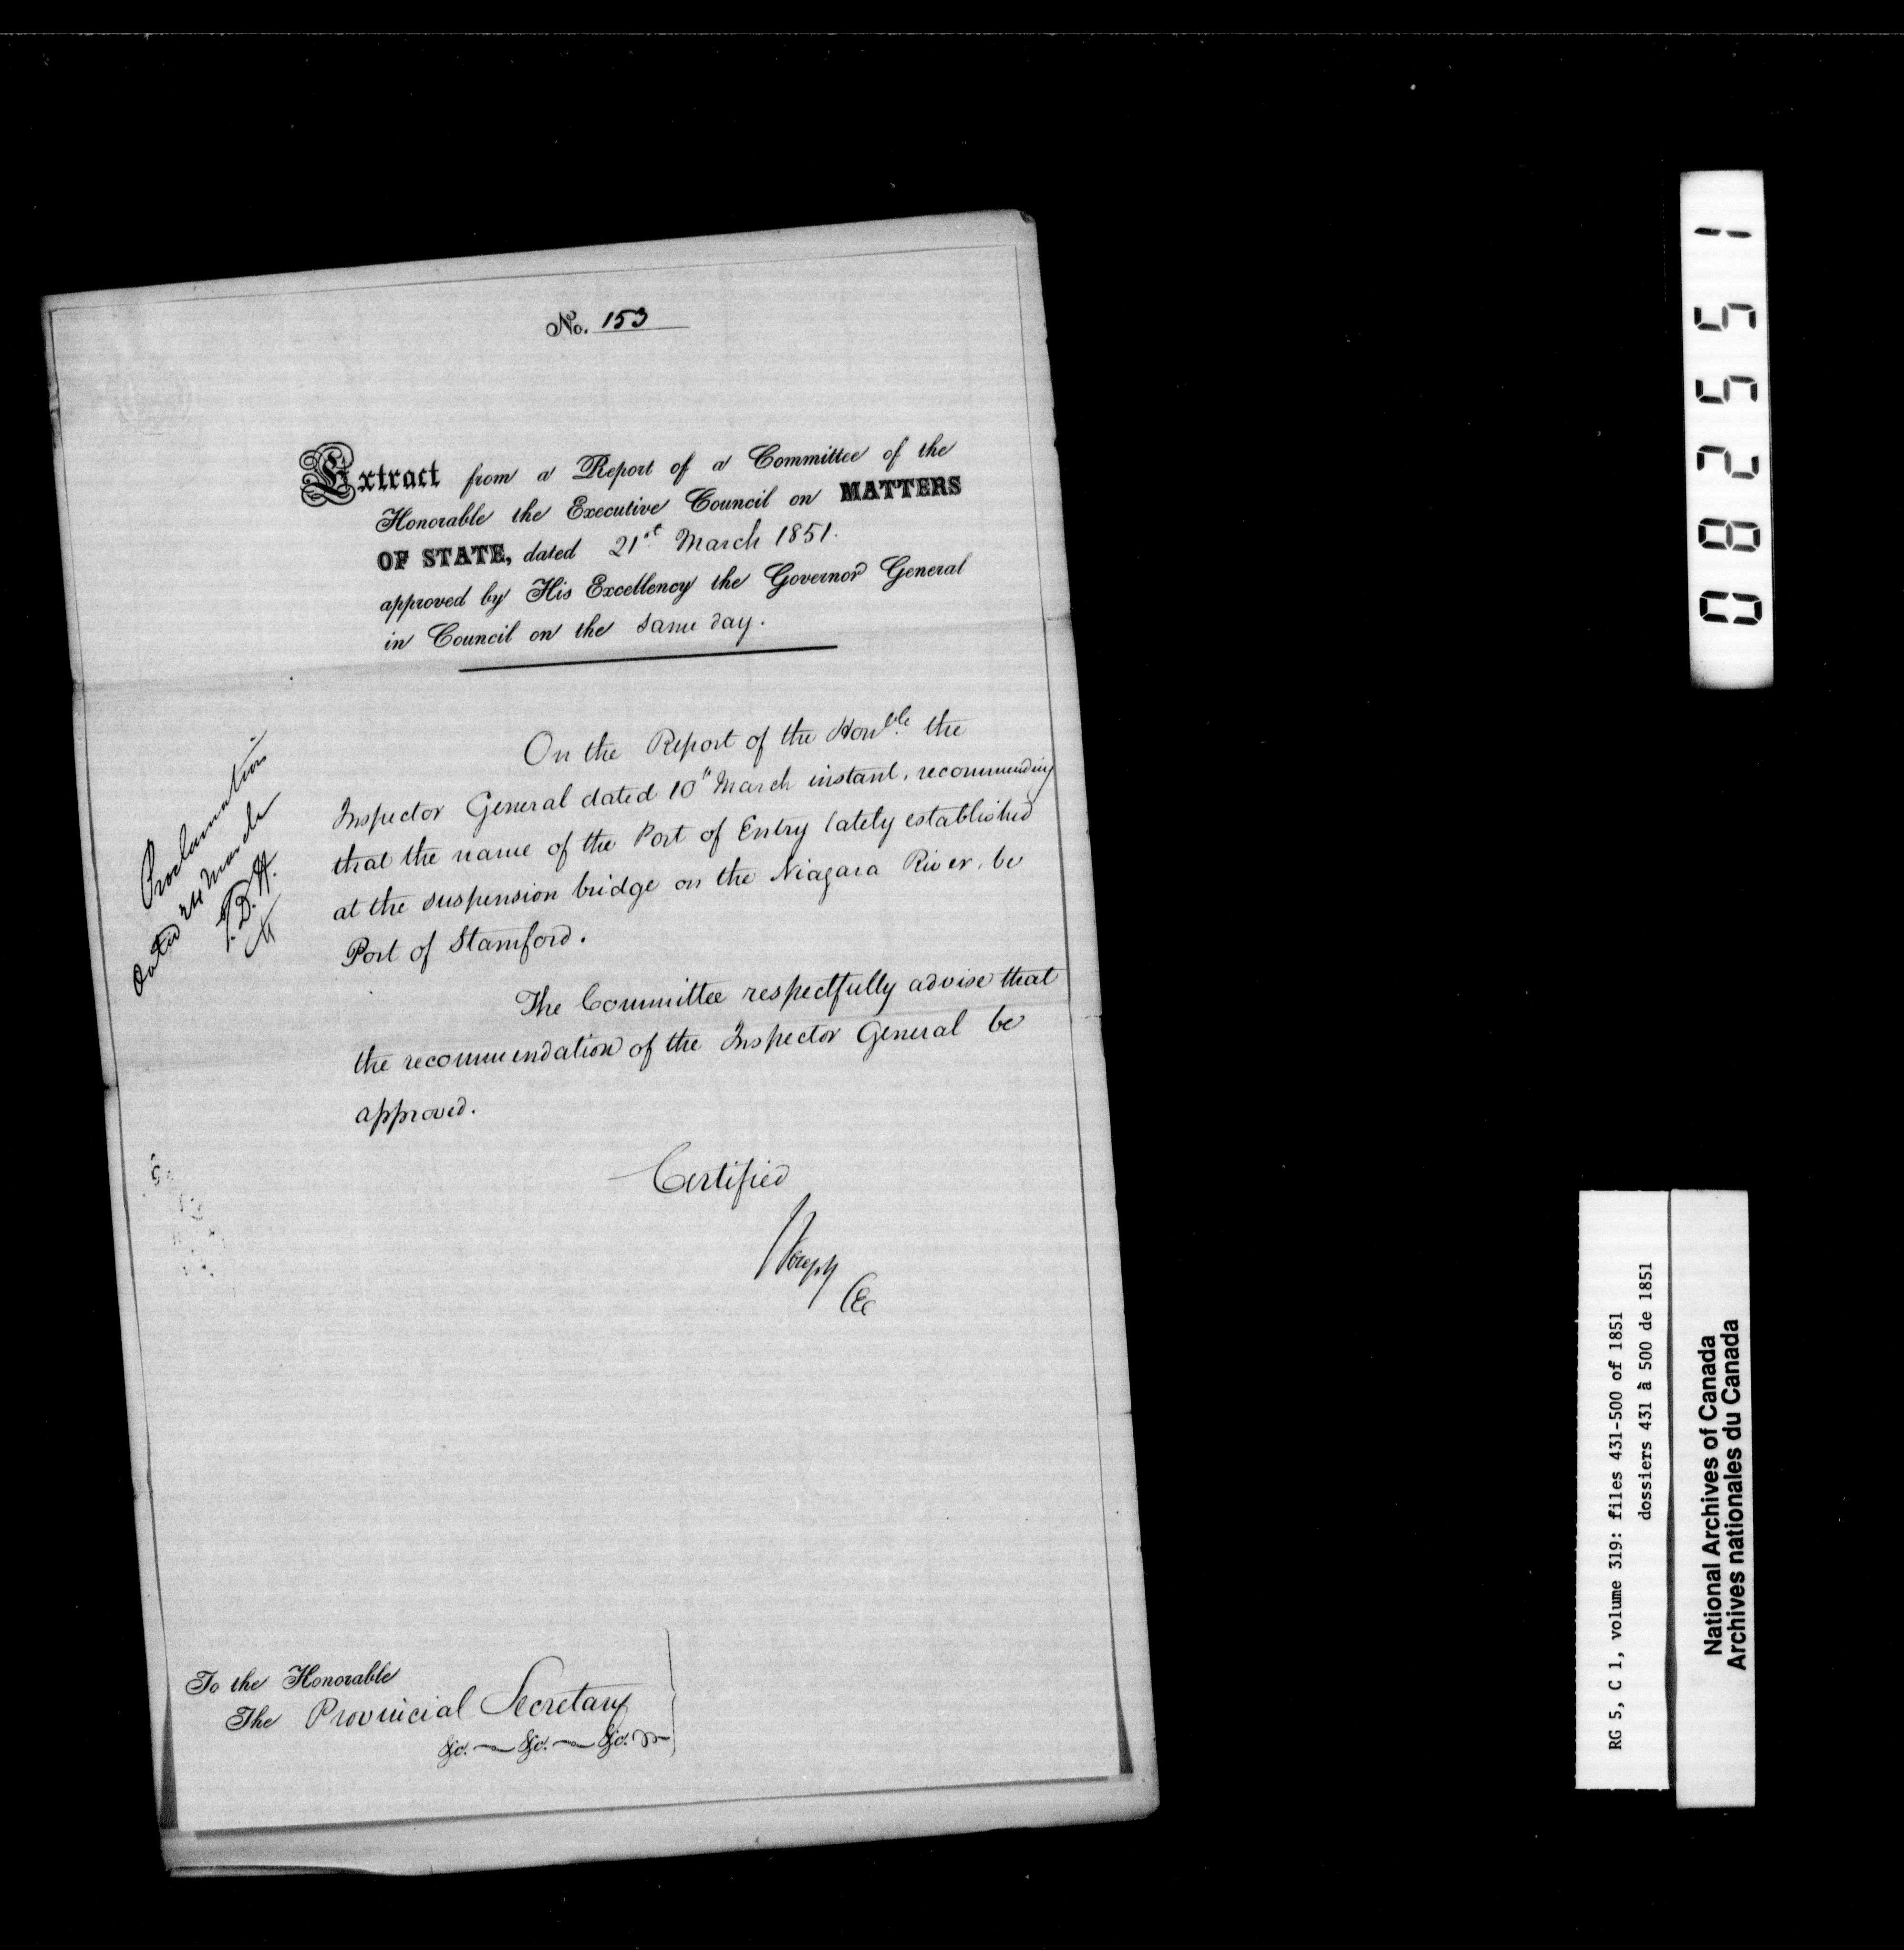 No. 153
Extract from a Report of a Committee of the
Honorable the Executive Council on MATTERS
OF STATE, dated 21st March 1851.
approved by His Excellency the Governor General
in Council on the same day.
On the Report of the Honble the
Inspector General dated 10th March instant, recommending
that the name of the Port of Entry lately established
at the suspension bridge on the Niagara River, be
Port of Stamford.
The Committee respectfully advise that
the recommendation of the Inspector General be
approved.
Certified
Joseph
CEC
Proclamation
dated 24 March
T.D.H.
To the Honorable
The Provincial Secretary
&c. &c. &c.
082551
RG 5, C 1, volume 319: files 431-500 of 1851
dossiers 431 à 500 de 1851
National Archives of Canada
Archives nationales du Canada